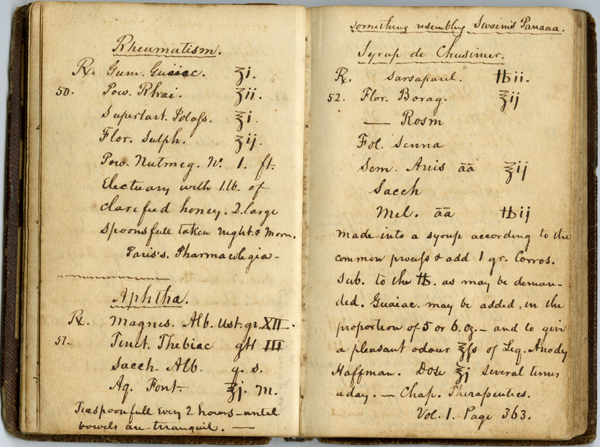 Rheumatism.
℞. Gum. Guaiac. ʒi.
50. Pow. Rhæi. ʒii.
Supertart. Potass. ℥i.
Flor. Sulph. ℥ij.
Pow. Nutmeg. No. 1. ft.
Electuary with 1 lb. of
clarified honey. 2. large
spoonsfull taken night & Morn.
Paris's. Pharmacologia—
Aphtha.
℞. Magnes. Alb. Ust. gr. XII
51. Tinct. Thebiac gtt III
Sacch Alb. q. s.
Aq. Font. ℥j. M.
Teaspoonfull every 2 hours—until
bowels are tranquil. —
something resembling Swaim's Panaaa.
Syrup de Chusiner.
℞. Sarsaparil. ℔ii.
52. Flor. Borag. ℥ij
— Rosm
Fol. Senna
Sem. Anis āā ℥ij
Sacch
Mel. āā ℔ij
made into a syrup according to the
common process & add 1 gr. Corros.
Sub. to the ℔. as may be deman-
ded. Guaiac may be added, in the
proportion of 5 or 6. oz. — and to give
a pleasant odour ℥ſs of Liq. Anody
Hoffman. Dose ℥j several times
a day. — Chap. Therapeutics.
Vol. 1. Page 363.